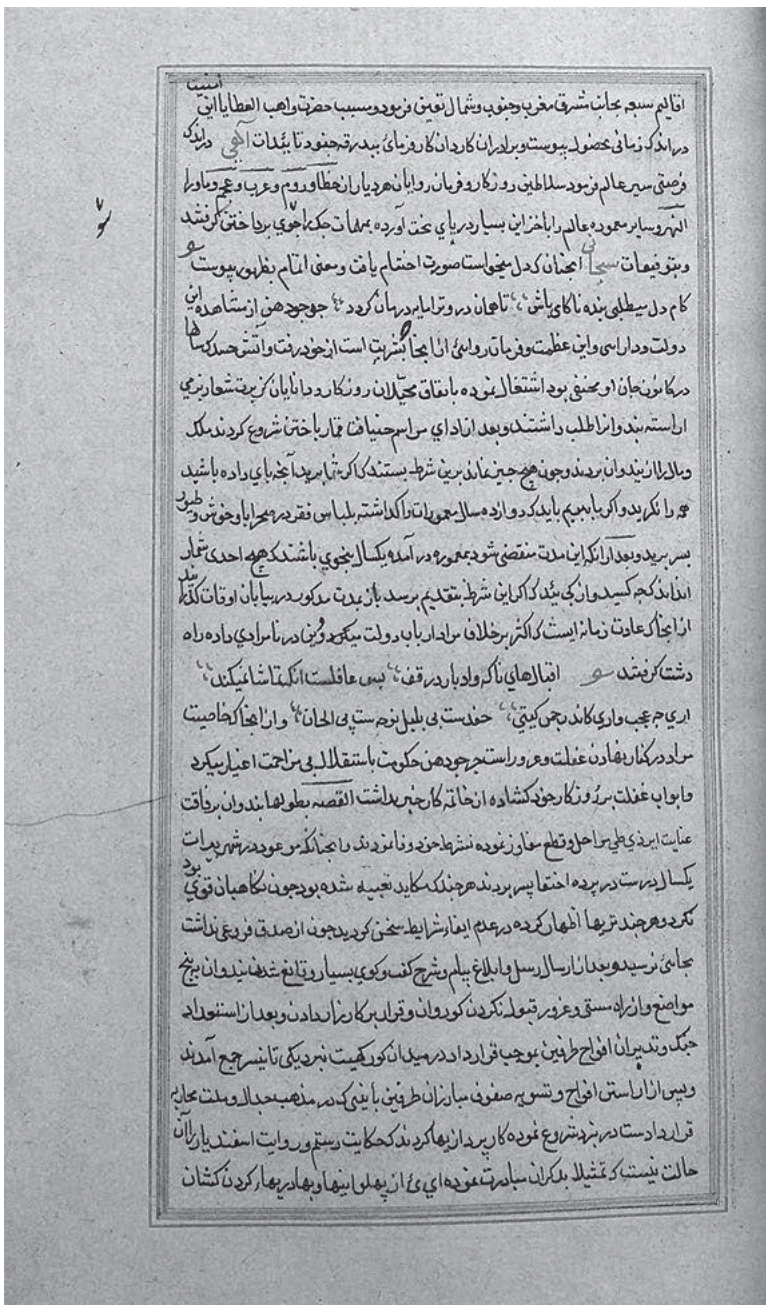 اقاليم سبعه بجانب مشرق مغرب وجنوب وشمال تعين فرمود و بسبب حضرت واهب العطايا اين امنيت
در اندك زمانى بحصول پيوست و برادران كاردان كار فرماى ببدرقه جنود تائيدات آلهى در اندك
فرصتى سير عالم فرمود سلاطين روزگار و فرمان روايان هر ديار از خطا و روم و عرب و عجم و ماورا
النهر و ساير معموره عالم را با خزاين بسيار در پاى تخت آورده بمهمات جك راجوى پرداختن گرفتند
و بتوفيقات سبحانى آنچنان كه دل ميخواست صورت اختتام يافت و معنى اتمام بظهور پيوست
كام دل ميطلبى بنده ناكامى باش تا همان در وترا مايه درمان گردد جرجودهن از مشاهده اين
دولت و داراسى و اين عظمت و فرمان روائى از انجا كه بشريت است از خود رفت و آتش حسد كه سالها
در كانون جان او مختفى بود اشتغال نموده باتفاق محيلان روزگار و دانايان كربزت شعار بزمى
اراسته پندوانرا طلب داشتند و بعد از اداى مراسم ضيافت قمار باختن شروع كردند ملك
و مال را از پندوان بردند و چون هيچ چيز نماند برين شرط بستند كه اگر شما بريد آنچه باى داده باشيد
همه را بگيريد و اگر ما ببريم بايد كه دوازده سال معمورات را گذاشته بلباس فقر در صحرا با وحوش و طيور
بسر بريد و بعد از انكه اين مدت منقضى شود بمعموره در آمده يكسال بنحوى باشند كه هيچ احدى شمار
انداند كه چه كسيد و از كجائيد كه اگر اين شرط بتقديم نرسد باز بمدت مذكور در بيابان اوقات گذرانند
از انجا كه عادت زمانه ايست كه اكثر برخلاف مراد ارباب دولت ميگردد وين در نامرادى داده راه
دشت گرفتند اقبالهاى ناكه وادبار در قفا پس عاقلست انكه تماشا نميكند
ارى چه عجب دارى كاندر چمن گيتى جغدست پى بلبل نوحه ست پى الحان و از انجا كه خاصيت
مراد در كنار نهادن غفلت و غرور است جرجودهن حكومت باستقلال بى مزاحمت اغيار ميكرد
و ابواب غفلت بر روزگار خود كشاده از خاتمه كار خبر نداشت القصه بطولها پندوان برفاقت
عنايت ايزدى طى مراحل و قطع مفاوز نموده بشرط خود وفا نمودند و آنچنانكه موعود در شهر بيرات بود
يكسال درست در پرده اختفا بسر بردند هرچند كه مكايد تعبيه شده بود چون نگاهبان قوى
نكرد و هرچند تزيها اظهار كرده در عدم ايفاء شرايط سخن كرديد چون از صدق فروغى نداشت
بجائى نرسيد و بعد از ارسال رسل و ابلاغ پيام و شرح گفت و گوى بسيار و قانع شدن پندوان به پنج
مواضع و از راه مستى و غرور قبول نكردن كوروان و قرار بر كارزار دادن و بعد از استعداد
جنگ و تدبيران افواج طرفين بموجب قرارداد در ميدان كوركهيت نزديكى تانيسر جمع آمدند
و پس از اراستن افواج و تسويه صفوف مبارزان طرفين بآئينى كه در مذهب جدال و ملت محاربه
قرارداد ست در نبرد شروع نموده كارپردازيها كردند كه حكايت رستم و روايت اسفنديار را آن
حالت نيست كه تمثيلا بذكر ان مبادرت نموده ايد از پهلوانيها و بهادريهاء گردن كشان